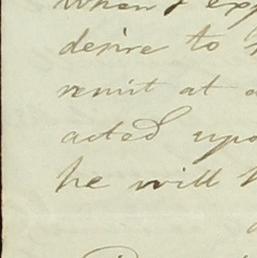 when I exp
desire to
remit at a
acted upo
he will